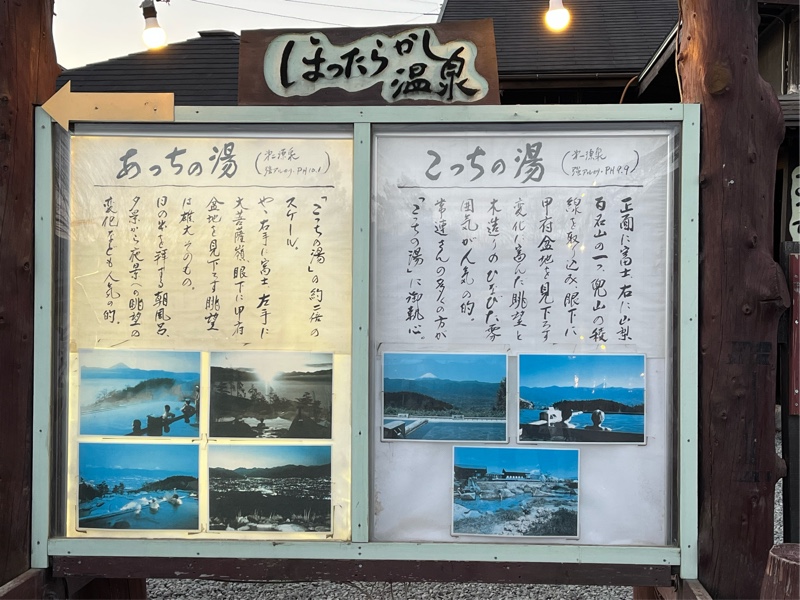 ほったらかし
温泉
こっちの湯
源泉
強アルカリ.PH9.9)
正面に富士、右に山梨
百名山の一つ、兜山の稜
線を取り込み、眼下に
甲府盆地を見下ろす
変化に富んだ眺望と
木造りのひなびた雰
囲気が人気の的。
常連さんの多くの方が
「こっちの湯」に御執心。
あっちの湯
源泉
強アルカリ.PH10.1)
「こっちの湯」の約二倍の
スケール。
やゝ右手に富士、左手に
大菩薩嶺、眼下に甲府
盆地を見下ろす眺望
は雄大そのもの。
日の出を拝する朝風呂、
夕景から夜景への眺望の
変化なども人気の的。